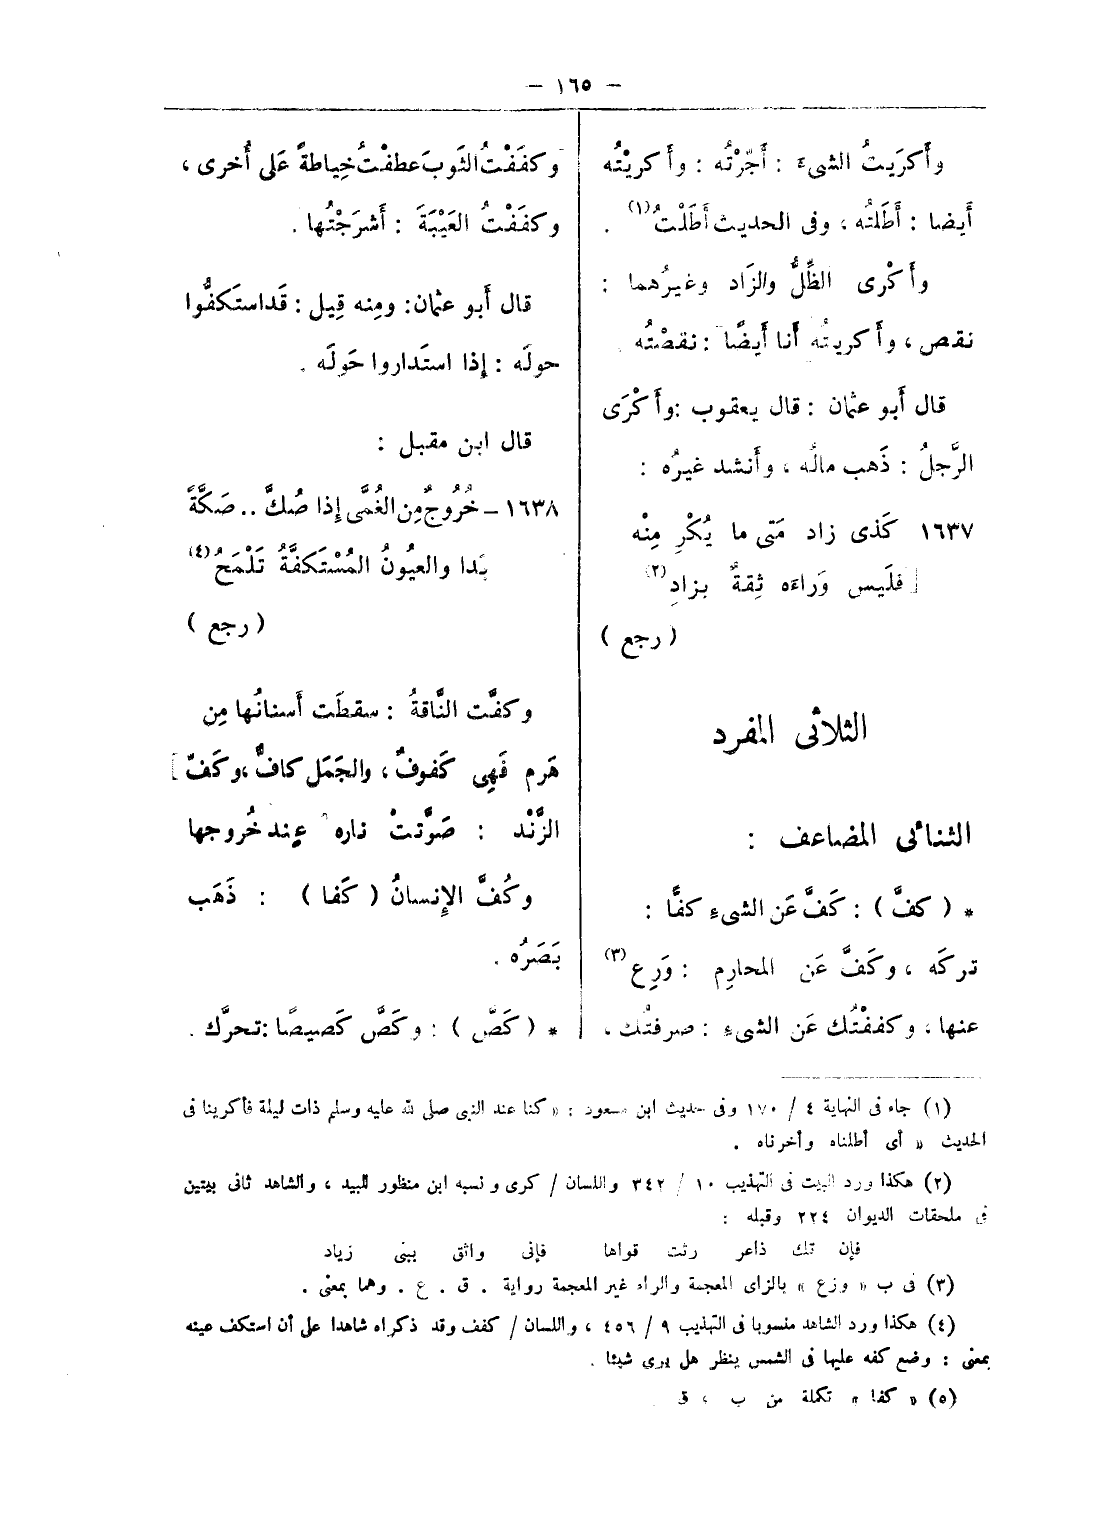 – ١٦٥ –
وأَكرَيتُ الشىءَ : أَجّرْتُه : وأَكريْتُه
أَيضا : أَطَلتُه ، وفى الحديث أَطَلْتُ(١) .
وأَكْرى الظِّلُّ والزَاد وغيرُهما :
نقص ، وأَكريتُه أَنا أَيضًا : نقصْتُه .
قال أَبو عثمان : قال يعقوب : وأَكْرَى
الرَّجلُ : ذَهب مالُه ، وأَنشد غيرُه :
١٦٣٧ كَذى زاد مَتى ما يُكْرِ مِنْه
فلَيس وَراءَه ثِقةٌ بزادِ(٢)
( رجع )
الثلاثى المفرد
الثنائى المضاعف :
* ( كفَّ ) : كَفَّ عَن الشىءِ كفًّا :
تركَه ، وكَفَّ عَن المحارِم : وَرِع(٣)
عنها ، وكففْتُك عَن الشىءِ : صرفتُك ،
وكفَفْتُ الثَوبَ عطفْتُ خِياطةً عَلى أُخرى ،
وكفَفْتُ العَيْبَةَ : أَشرَجْتُها .
قال أَبو عثمان : ومِنه قِيل : قَد استَكفُّوا
حولَه : إِذا استَداروا حَولَه .
قال ابن مقبل :
١٦٣٨ – خُرُوجٌ مِن الغُمَّى إِذا صُكَّ .. صَكَّةً
بَدا والعيُونُ المُسْتَكفَّةُ تَلْمَحُ(٤)
( رجع )
وكفَّت النَّاقةُ : سقطَت أَسنانُها مِن
هَرم فَهِى كَفوفٌ ، والجَمَل كافٌّ ، وكَفَّ ]
الزَّنْد : صَوَّتتْ ناره عِند خُروجها
وكُفَّ الإِنسانُ ( كَفا ) : ذَهَب
بَصَرُه .
* ( كَصَّ ) : وكَصَّ كَصيصًا : تحرَّك .
(١) جاء فى النهاية ٤ / ١٧٠ وفى حديث ابن مسعود : « كنا عند النبى صلى الله عليه وسلم ذات ليلة فأكرينا فى
الحديث » أى أطلناه وأخرناه .
(٢) هكذا ورد البيت فى التهذيب ١٠ / ٣٤٢ واللسان / كرى ونسبه ابن منظور للبيد ، والشاهد ثانى بيتين
فى ملحقات الديوان ٢٢٤ وقبله :
فإن تك ذاعر رثت قواها فإنى واثق ببنى زياد
(٣) فى ب « وزع » بالزاى المعجمة والراء غير المعجمة رواية . ق . ع . وهما بمعنى .
(٤) هكذا ورد الشاهد منسوبا فى التهذيب ٩ / ٤٥٦ ، واللسان / كفف وقد ذكراه شاهدا على أن استكف عينه
بمعنى : وضع كفه عليها فى الشمس ينظر هل يرى شيئا .
(٥) « كفا » تكملة من ب ، ق